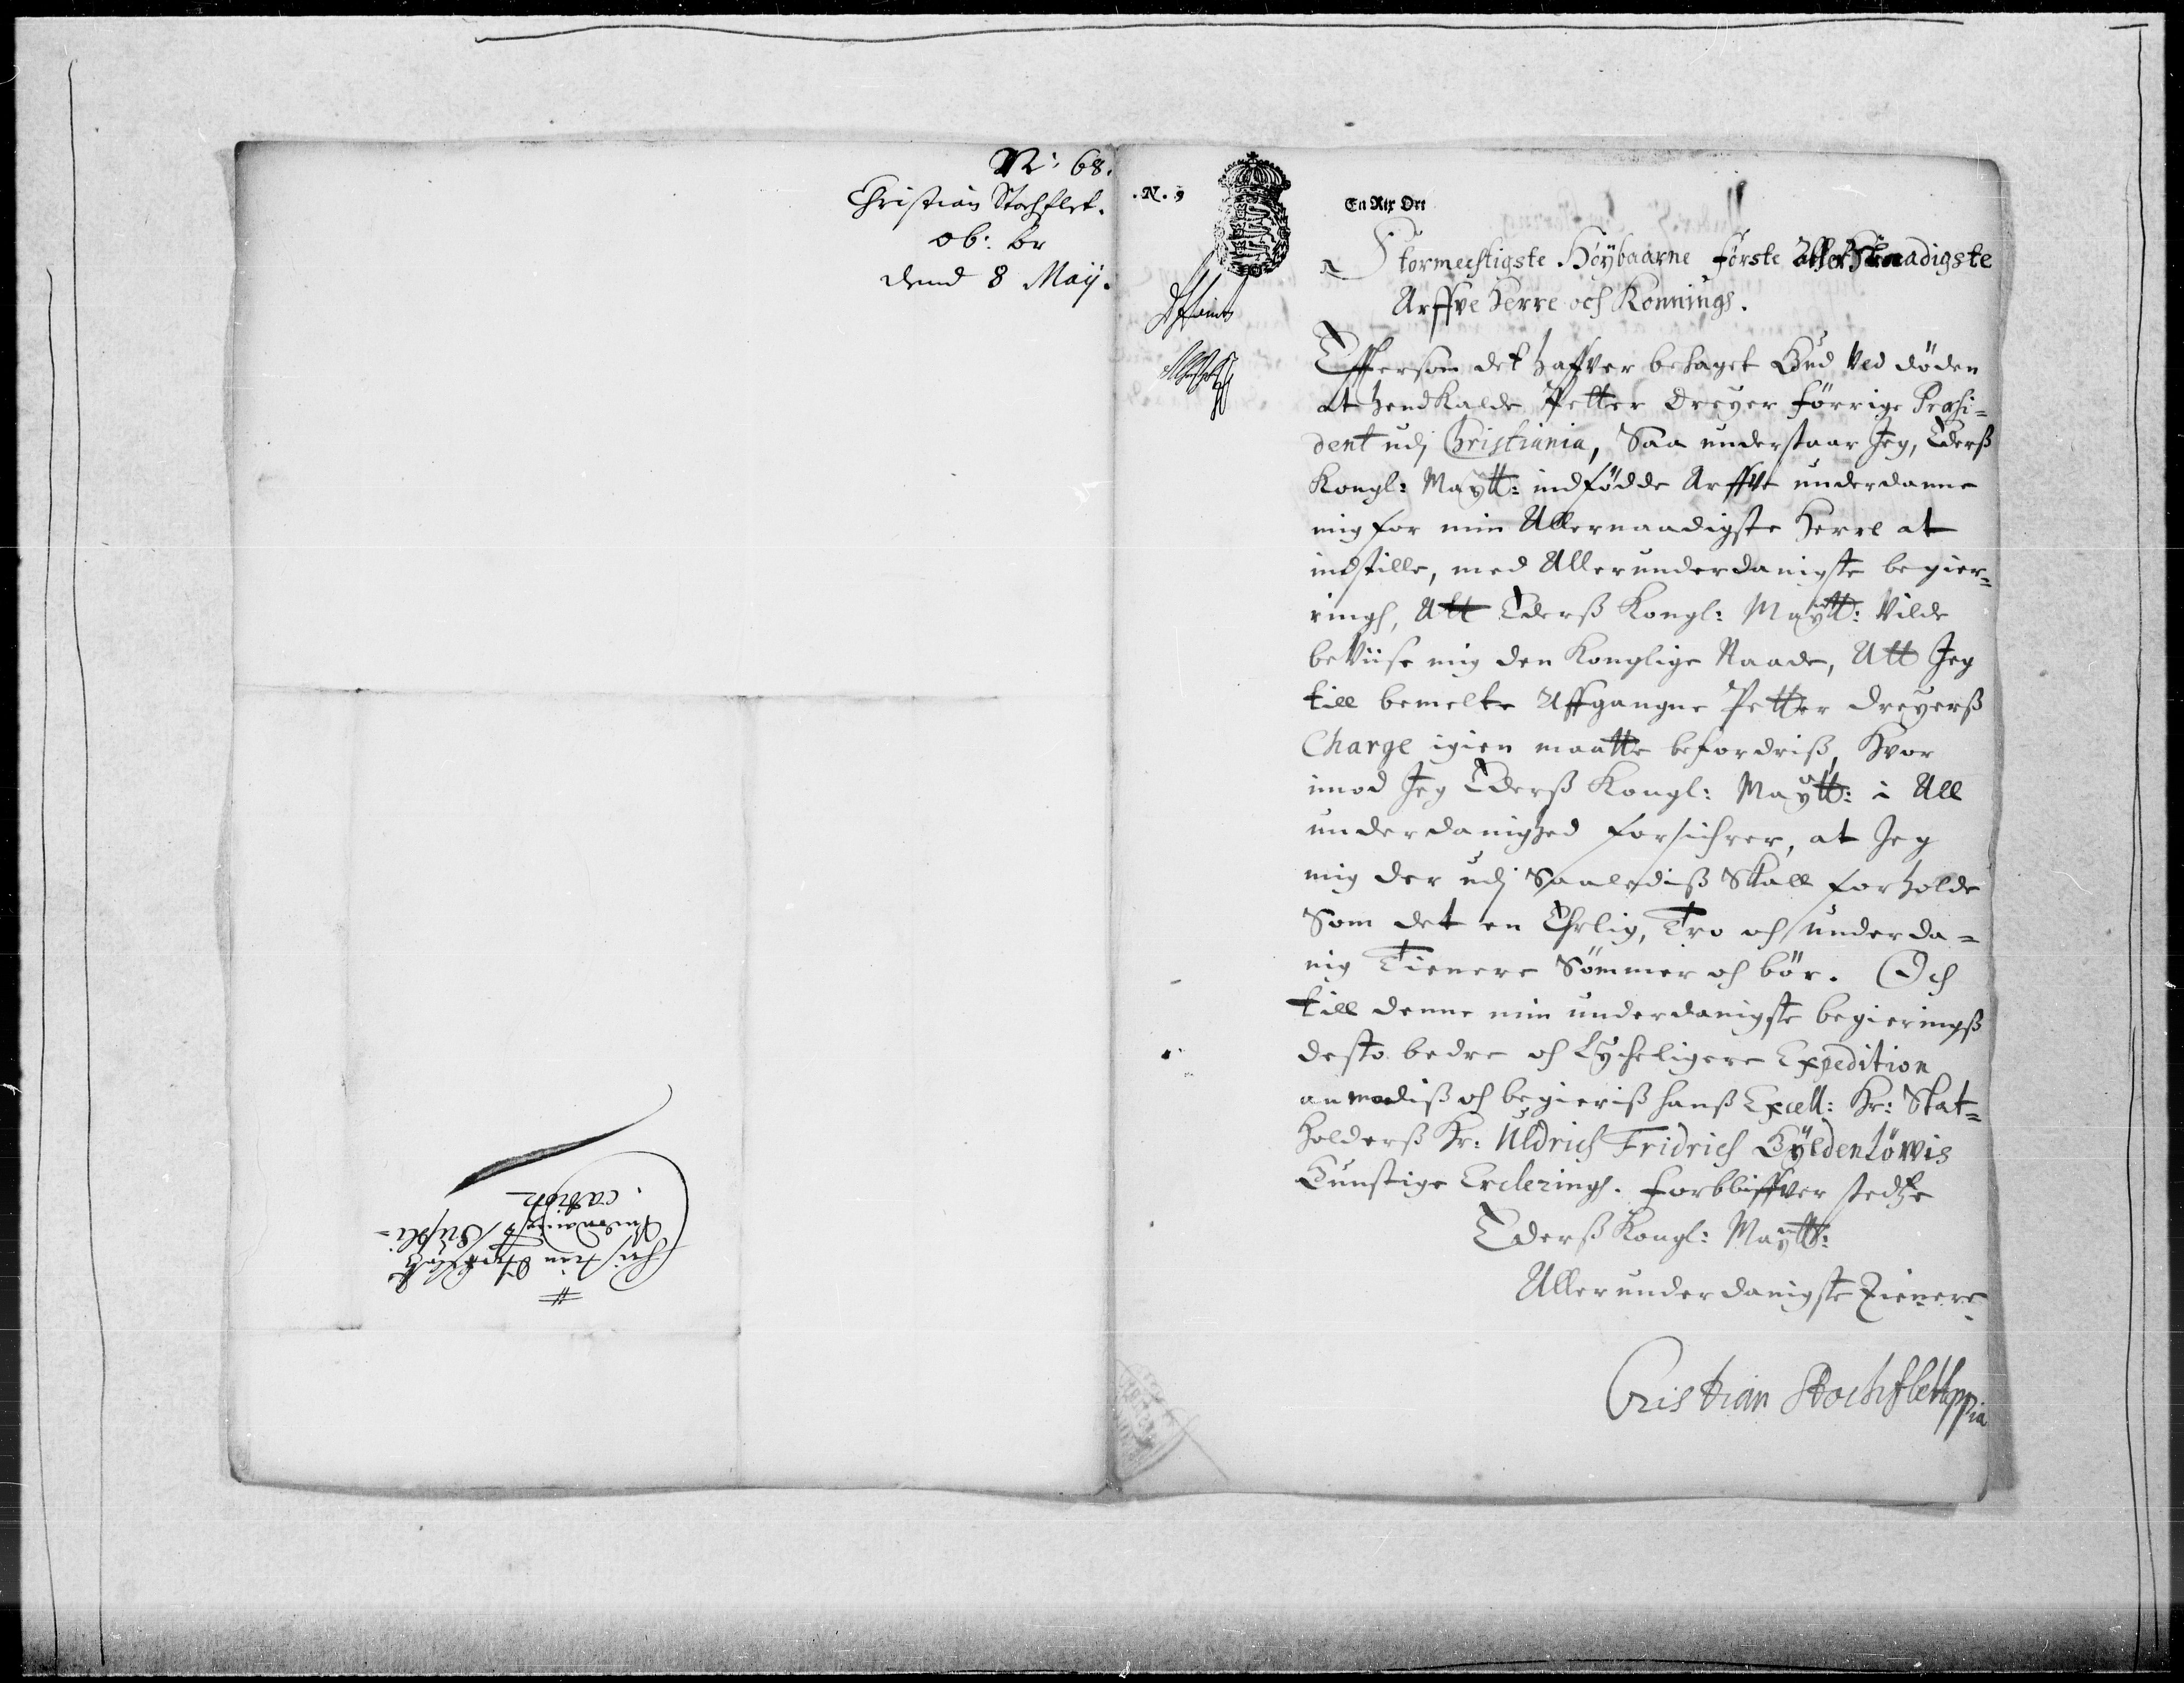 N: 68.
Christian Stochflet.
ob: br
dend 8 Maij.
Christian Stochfletz
Underdanigste Suppli-
cation.
.N. 9
En Rix Ort
Stormectigste Höÿbaarne Første Aller Naadigste
Arffve Herre och Konningh.
Efftersom det haffver behaget Gud Ved döden
at hendkalde Petter Dreÿer förrige Præsi=
dent udj Christiania, Saa understaar Jeg, Eders
Kongl: Maÿtt: indfödde Arffve underdanne
mig for min Allernaadigste Herre at
indstille, med Allerunderdanigste begier=
ingh, Att Eders Kongl: Maÿtt: Vilde
beViise mig den Konglige Naade, Att Jeg
till bemelte Affgangne Petter Dreÿerß
Charge igien maatte befordriß, Hvor
imod Jeg Eders Kongl: Maÿtt: i All
underdanighed forsichrer, at Jeg
mig der udj Saalediß Skall forholde
Som det en Ehrlig, Tro och underda=
nig Tienere Sömmer och bör. Och
till denne min underdanigste begieringß
desto bedre och Lycheligere Expedition
anmodiß och begieriß hanß Excell: Hr: Stat=
holderß Hr: Uldrich Fridrich Gÿldenlöwis
Gunstige Ercleringh. Forbliffver stedtze
Eders Kongl: Maÿtt:
Allerunderdanigste Tienere
Cristian Stochfleth ppia